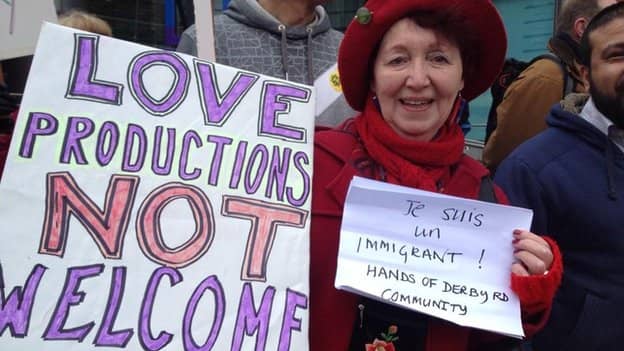 LOVE
PRODUCTIONS
NOT
WELCOME
Je suis
un
IMMIGRANT !
HANDS OF DERBY RD
COMMUNITY